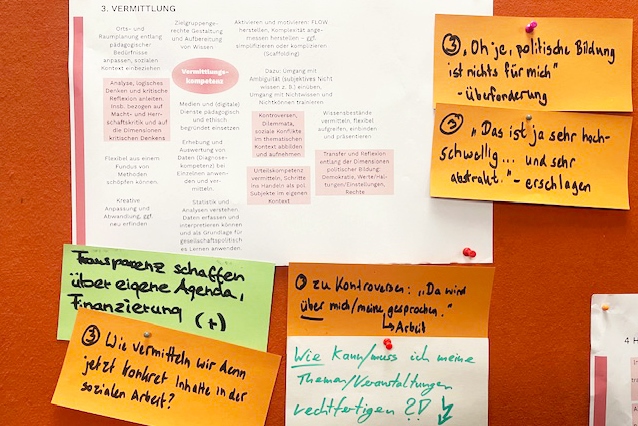 3. VERMITTLUNG
Orts- und
Raumplanung entlang
pädagogischer
Bedürfnisse
anpassen, sozialen
Kontext einbeziehen
Zielgruppenge-
rechte Gestaltung
und Aufbereitung
von Wissen
Aktivieren und motivieren: FLOW
herstellen, Komplexität ange-
messen herstellen – ggf.
simplifizieren oder komplizieren
(Scaffolding)
Vermittlungs-
kompetenz
Dazu: Umgang mit
Ambiguität (subjektives Nicht
wissen z. B.) einüben,
Umgang mit Nichtwissen und
Nichtkönnen trainieren
Analyse, logisches
Denken und kritische
Reflexion anleiten.
Insb. bezogen auf
Macht- und Herr-
schaftskritik und auf
die Dimensionen
kritischen Denkens
Medien und (digitale)
Dienste pädagogisch
und ethisch
begründet einsetzen.
Kontroversen,
Dilemmata,
soziale Konflikte
im thematischen
Kontext abbilden
und aufnehmen.
Wissensbestände
vermitteln, flexibel
aufgreifen, einbinden
und präsentieren
Erhebung und
Auswertung von
Daten (Diagnose-
kompetenz) bei
Einzelnen anwen-
den und ver-
mitteln.
Transfer und Reflexion
entlang der Dimensionen
politischer Bildung:
Demokratie, Werte/Hal-
tungen/Einstellungen,
Rechte
Flexibel aus einem
Fundus von
Methoden
schöpfen können
Urteilskompetenz
vermitteln, Schritte
ins Handeln als pol.
Subjekte im eigenen
Kontext
Kreative
Anpassung und
Abwandlung, ggf.
neu erfinden
Statistik und
Analysen verstehen,
Daten erfassen und
interpretieren können
und als Grundlage für
gesellschaftspolitisch
es Lernen anwenden.
③ „Oh je, politische Bildung
ist nichts für mich"
- Überforderung
③ „Das ist ja sehr hoch-
schwellig... und sehr
abstrakt." - erschlagen
Transparenz schaffen
über eigene Agenda,
Finanzierung (+)
③ Wie vermitteln wir denn
jetzt konkret Inhalte in der
sozialen Arbeit?
zu Kontroversen: „Da wird
über mich/meine gesprochen."
↳ Arbeit
Wie kann/muss ich meine
Themen/Veranstaltungen
rechtfertigen ?!
4 H